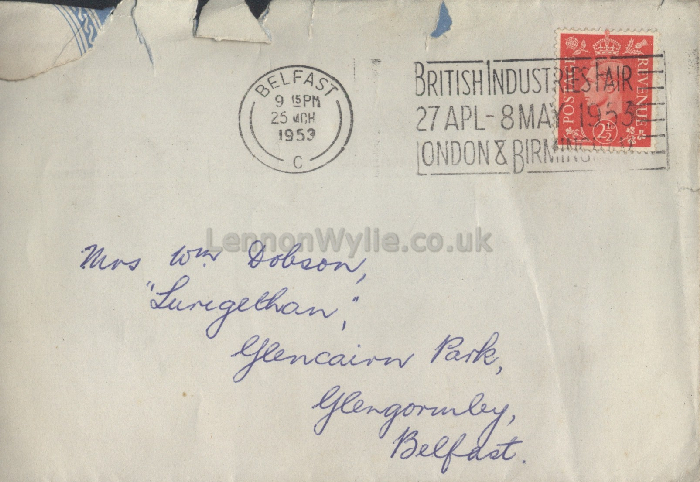 BELFAST
9 15PM
25 MCH
1953
C
BRITISH INDUSTRIES FAIR
27 APL - 8 MAY 1953
LONDON & BIRMING
POSTAGE
REVENUE
2½
LennonWylie.co.uk
Mrs Wm Dobson,
"Lurigethan",
Glencairn Park,
Glengormley,
Belfast.